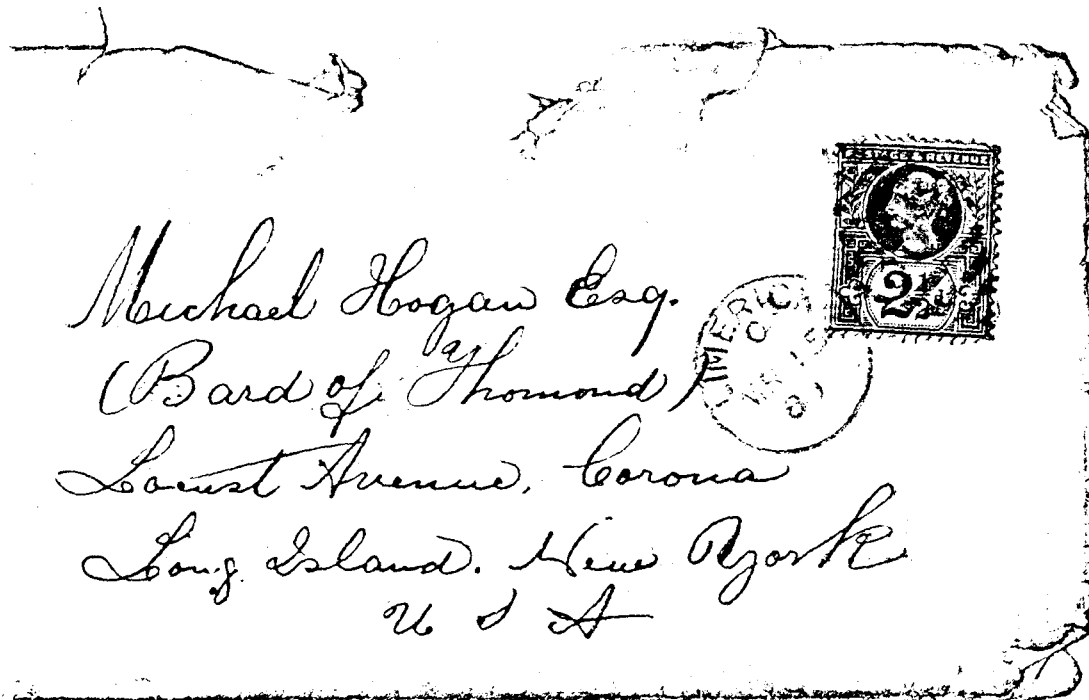 POSTAGE & REVENUE
2½d
Michael Hogan Esq.
LIMERICK
(Bard of Thomond)
Locust Avenue, Corona
Long Island. New York
U S A